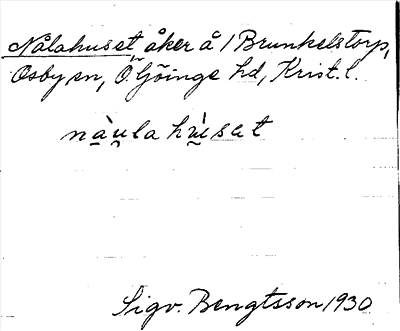 Nålahuset åker å 1 Brunkelstorp,
Osby sn, Ö. Göinge hd, Krist. l.
na̱ù̯la hù̯isat
Sigv. Bengtsson 1930